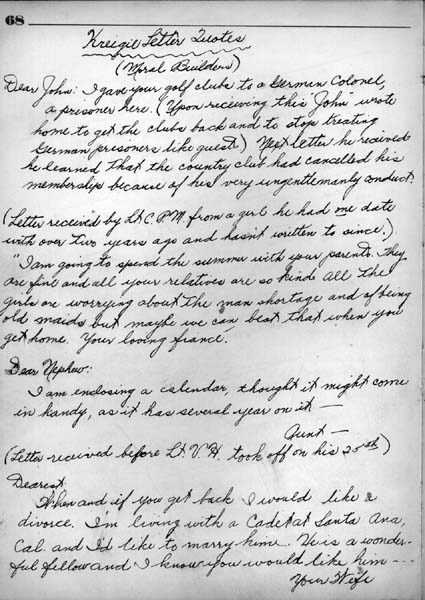 68
Kreigie Letter Quotes
(Moral Builders)
Dear John: I gave your golf clubs to a German Colonel,
a prisoner here. (Upon receiving this "John" wrote
home to get the clubs back and to stop treating
German prisoners like guest.) Next letter he recieved
he learned that the country club had cancelled his
membership because of his very ungentlemanly conduct.
(Letter received by Lt. C.P.M. from a girl he had one date
with over two years ago and hasn't written to since.)
"I am going to spend the summer with your parents. They
are fine and all your relatives are so kinde All the
girls are worrying about the man shortage and of being
old maids but maybe we can beat that when you
get home. Your loving fiance.
Dear Nephew:
I am enclosing a calendar, thought it might come
in handy, as it has several year on it —
Aunt —
(Letter received before Lt. V.H. took off on his 25th)
Dearest
When and if you get back I would like a
divorce. I'm living with a Cadet at Santa Ana,
Cal. and I'd like to marry hime. He is a wonder-
ful fellow and I know you would like him ---
Your Wife